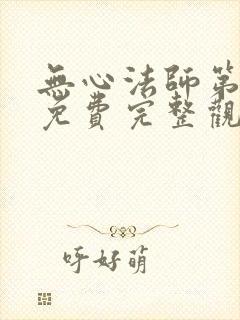 無心法師第
免費完整觀
呼好萌